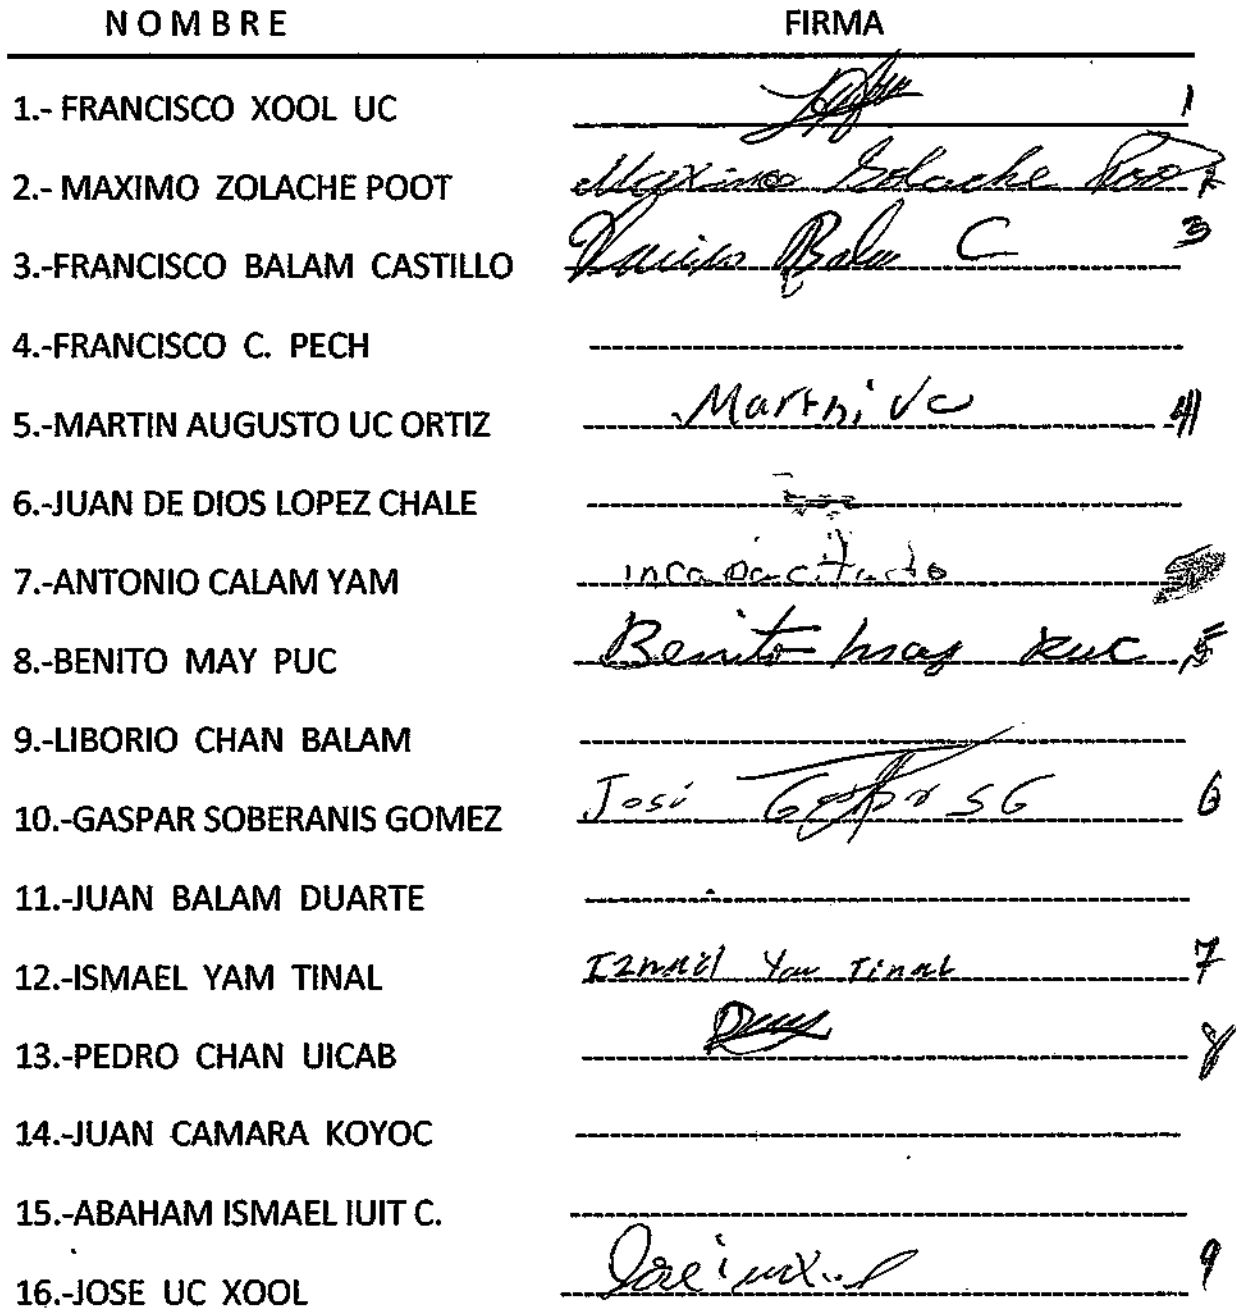 NOMBRE FIRMA
1.- FRANCISCO XOOL UC 1
2.- MAXIMO ZOLACHE POOT Maximo Zolache 2
3.-FRANCISCO BALAM CASTILLO C 3
4.-FRANCISCO C. PECH
5.-MARTIN AUGUSTO UC ORTIZ Martni Uc 4
6.-JUAN DE DIOS LOPEZ CHALE
7.-ANTONIO CALAM YAM incapacitado
8.-BENITO MAY PUC Benito may puc 5
9.-LIBORIO CHAN BALAM
10.-GASPAR SOBERANIS GOMEZ José SG 6
11.-JUAN BALAM DUARTE
12.-ISMAEL YAM TINAL Izmael Yam Tinal 7
13.-PEDRO CHAN UICAB 8
14.-JUAN CAMARA KOYOC
15.-ABAHAM ISMAEL IUIT C.
16.-JOSE UC XOOL 9